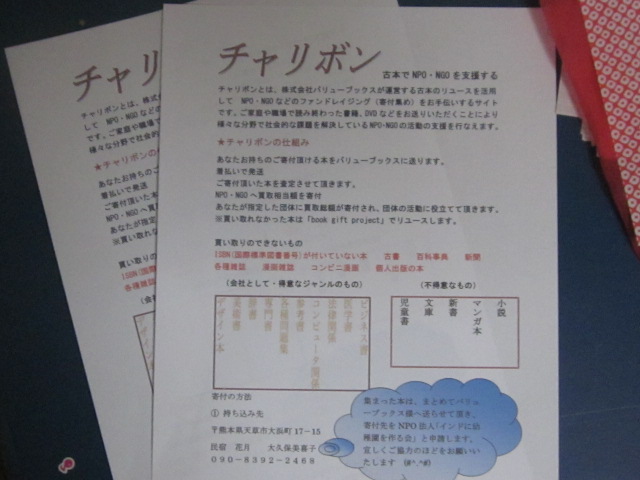 チャリボン
古本でNPO・NGOを支援する
チャリボンとは、株式会社バリューブックスが運営する古本のリユースを活用
して NPO・NGOなどのファンドレイジング（寄付集め）をお手伝いするサイト
です。ご家庭や職場で読み終わった書籍、DVDなどをお送りいただくことにより
様々な分野で社会的な課題を解決しているNPO・NGOの活動の支援を行なえます。
★チャリボンの仕組み
あなたお持ちのご寄付頂ける本をバリューブックスに送ります。
着払いで発送
ご寄付頂いた本を査定させて頂きます。
NPO・NGOへ買取相当額を寄付
あなたが指定した団体に買取総額が寄付され、団体の活動に役立てて頂きます。
※買い取れなかった本は「book gift project」でリユースします。
買い取りのできないもの
ISBN(国際標準図書番号)が付いていない本 古書 百科事典 新聞
各種雑誌 漫画雑誌 コンビニ漫画 個人出版の本
（会社として・得意なジャンルのもの）
ビジネス書
医学書
法律関係
コンピュータ関係
参考書
各種問題集
専門書
辞書
美術書
デザイン本
（不得意なもの）
小説
マンガ本
新書
文庫
児童書
寄付の方法
① 持ち込み先
〒熊本県天草市大浜町17－15
民宿 花月 大久保美喜子
090－8392－2468
集まった本は、まとめてバリュ
ーブックス様へ送らせて頂き、
寄付先をNPO法人「インドに幼
稚園を作る会」と申請します。
宜しくご協力のほどをお願いい
たします (#^.^#)
チャリ
チャリボンとは、株式
して NPO・NGOなどの
です。ご家庭や職場で
様々な分野で社会的
★チャリボンの
あなたお持ちのご
着払いで発送
ご寄付頂いた本
NPO・NGOへ買
あなたが指定し
※買い取れな
買い取りの
ISBN(国際
各種雑誌
（会社